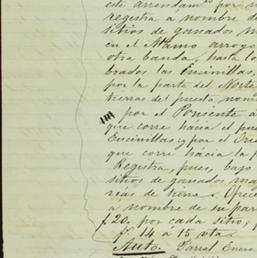 este arrendam.to por m
registra a nombre de
sitios de ganados m
en el Alamo arroyo
otra banda, hasta lo
brados las Encinillas,
por la parte del Norte
tierras del puesto nom
por el Poniente a
que corre hacia el pue
Encinillas y por el Ori
que corre hacia la
Registra, pues, bajo
sitios de ganados ma
rias de tierra
a nombre de su par
f. 20. por cada sitio,
f. 14 á 15 vta.
Auto. Parral Enero